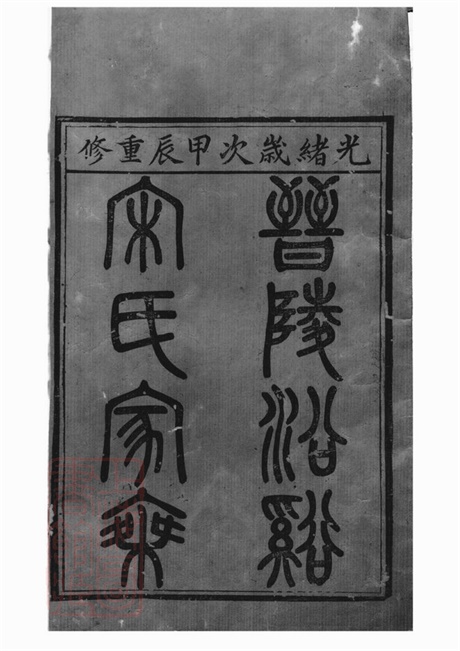 光緒歲次甲辰重修
晉陵浴谿
宋氏家乘